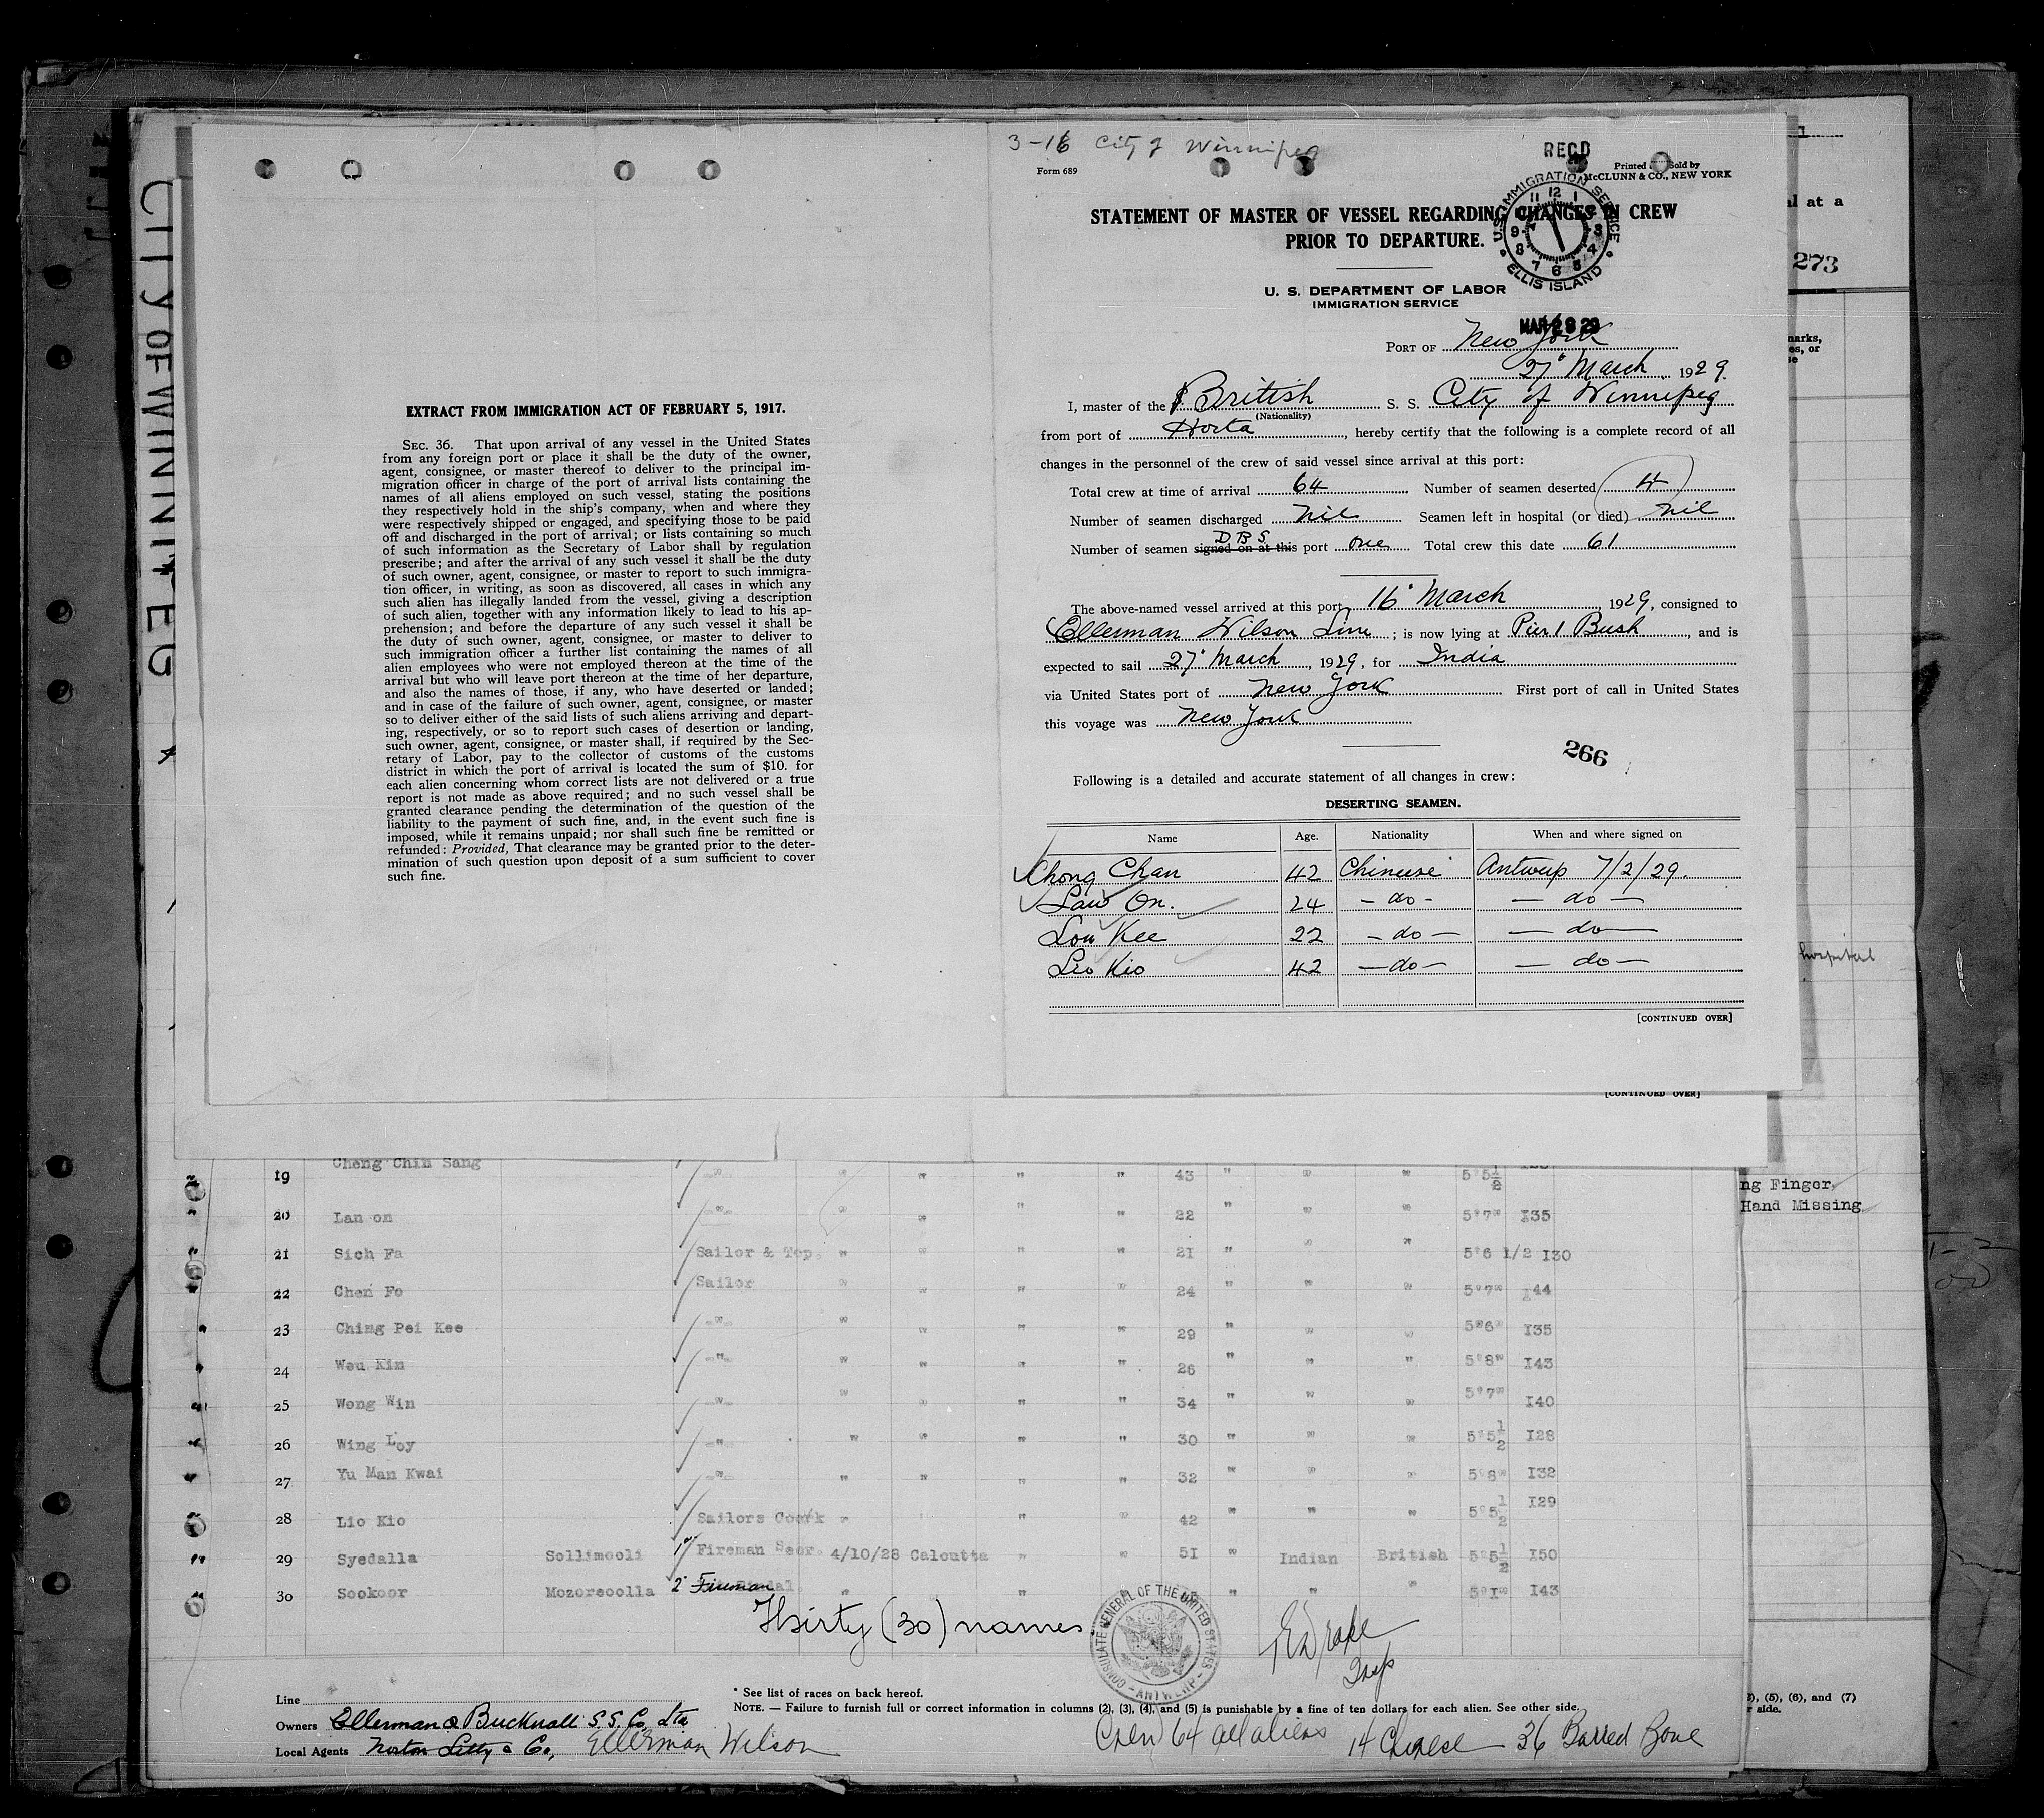 CITY OF WINNIPEG
EXTRACT FROM IMMIGRATION ACT OF FEBRUARY 5, 1917.
SEC. 36. That upon arrival of any vessel in the United States
from any foreign port or place it shall be the duty of the owner,
agent, consignee, or master thereof to deliver to the principal im-
migration officer in charge of the port of arrival lists containing the
names of all aliens employed on such vessel, stating the positions
they respectively hold in the ship's company, when and where they
were respectively shipped or engaged, and specifying those to be paid
off and discharged in the port of arrival; or lists containing so much
of such information as the Secretary of Labor shall by regulation
prescribe; and after the arrival of any such vessel it shall be the duty
of such owner, agent, consignee, or master to report to such immigra-
tion officer, in writing, as soon as discovered, all cases in which any
such alien has illegally landed from the vessel, giving a description
of such alien, together with any information likely to lead to his ap-
prehension; and before the departure of any such vessel it shall be
the duty of such owner, agent, consignee, or master to deliver to
such immigration officer a further list containing the names of all
alien employees who were not employed thereon at the time of the
arrival but who will leave port thereon at the time of her departure,
and also the names of those, if any, who have deserted or landed;
and in case of the failure of such owner, agent, consignee, or master
so to deliver either of the said lists of such aliens arriving and depart-
ing, respectively, or so to report such cases of desertion or landing,
such owner, agent, consignee, or master shall, if required by the Sec-
retary of Labor, pay to the collector of customs of the customs
district in which the port of arrival is located the sum of $10. for
each alien concerning whom correct lists are not delivered or a true
report is not made as above required; and no such vessel shall be
granted clearance pending the determination of the question of the
liability to the payment of such fine, and, in the event such fine is
imposed, while it remains unpaid; nor shall such fine be remitted or
refunded: Provided, That clearance may be granted prior to the deter-
mination of such question upon deposit of a sum sufficient to cover
such fine.
3-16 City of Winnipeg
Form 689
RECD
Printed Sold by
McCLUNN & CO., NEW YORK
U.S. IMMIGRATION SERVICE
ELLIS ISLAND
STATEMENT OF MASTER OF VESSEL REGARDING CHANGES IN CREW
PRIOR TO DEPARTURE.
U. S. DEPARTMENT OF LABOR
IMMIGRATION SERVICE
MAR 28 29
PORT OF New York
27' March 1929.
I, master of the British S. S. City of Winnipeg
(Nationality)
from port of Horta, hereby certify that the following is a complete record of all
changes in the personnel of the crew of said vessel since arrival at this port:
Total crew at time of arrival 64 Number of seamen deserted 4
Number of seamen discharged Nil Seamen left in hospital (or died) nil
D B S
Number of seamen signed on at this port one Total crew this date 61
The above-named vessel arrived at this port 16' March 1929, consigned to
Ellerman Wilson Line; is now lying at Pier 1 Bush, and is
expected to sail 27' March, 1929, for India
via United States port of New York First port of call in United States
this voyage was New York
266
Following is a detailed and accurate statement of all changes in crew:
DESERTING SEAMEN.
Name Age. Nationality When and where signed on
Chong Chan 42 Chinese Antwerp 7/2/29.
Law On. 24 - do - - do -
Lou Kee 22 - do - - do -
Lio Kio 42 - do - - do -
[CONTINUED OVER]
[CONTINUED OVER]
l at a
273
marks,
es, or
hospital
ng Finger
Hand Missing
19 Cheng Chim Sang " " " " " 43 " " " 5'5 1/2
20 Lan on " " " " " 22 " " " 5'7" 135
21 Sich Fa Sailor & Top. " " " " 21 " " " 5'6 1/2 130
22 Chen Fo Sailor " " " " 24 " " " 5'7" 144
23 Ching Pei Kee " " " " " 29 " " " 5'6" 135
24 Wou Kim " " " " " 26 " " " 5'8" 143
25 Wong Win " " " " " 34 " " " 5'7" 140
26 Wing Loy " " " " " 30 " " " 5'5 1/2 128
27 Yu Man Kwai " " " " " 32 " " " 5'8" 132
28 Lio Kio Sailors Cook " " " 42 " " " 5'5 1/2 129
29 Syedalla Sollimooli 1' Fireman Seor. 4/10/28 Calcutta " " 51 " Indian British 5'5 1/2 150
30 Sookoor Mozorecolla 2' Fireman " " " " " 5'1" 143
Thirty (30) names
CONSULATE GENERAL OF THE UNITED STATES - ANTWERP -
Insp
* See list of races on back hereof.
NOTE. — Failure to furnish full or correct information in columns (2), (3), (4), and (5) is punishable by a fine of ten dollars for each alien. See other side.
Line
Owners Ellerman & Bucknall S.S. Co. Ltd
Local Agents Norton Lilly & Co, Ellerman Wilson
Crew 64 all aliens 14 Chinese 36 Barred Zone
), (5), (6), and (7)
r side.